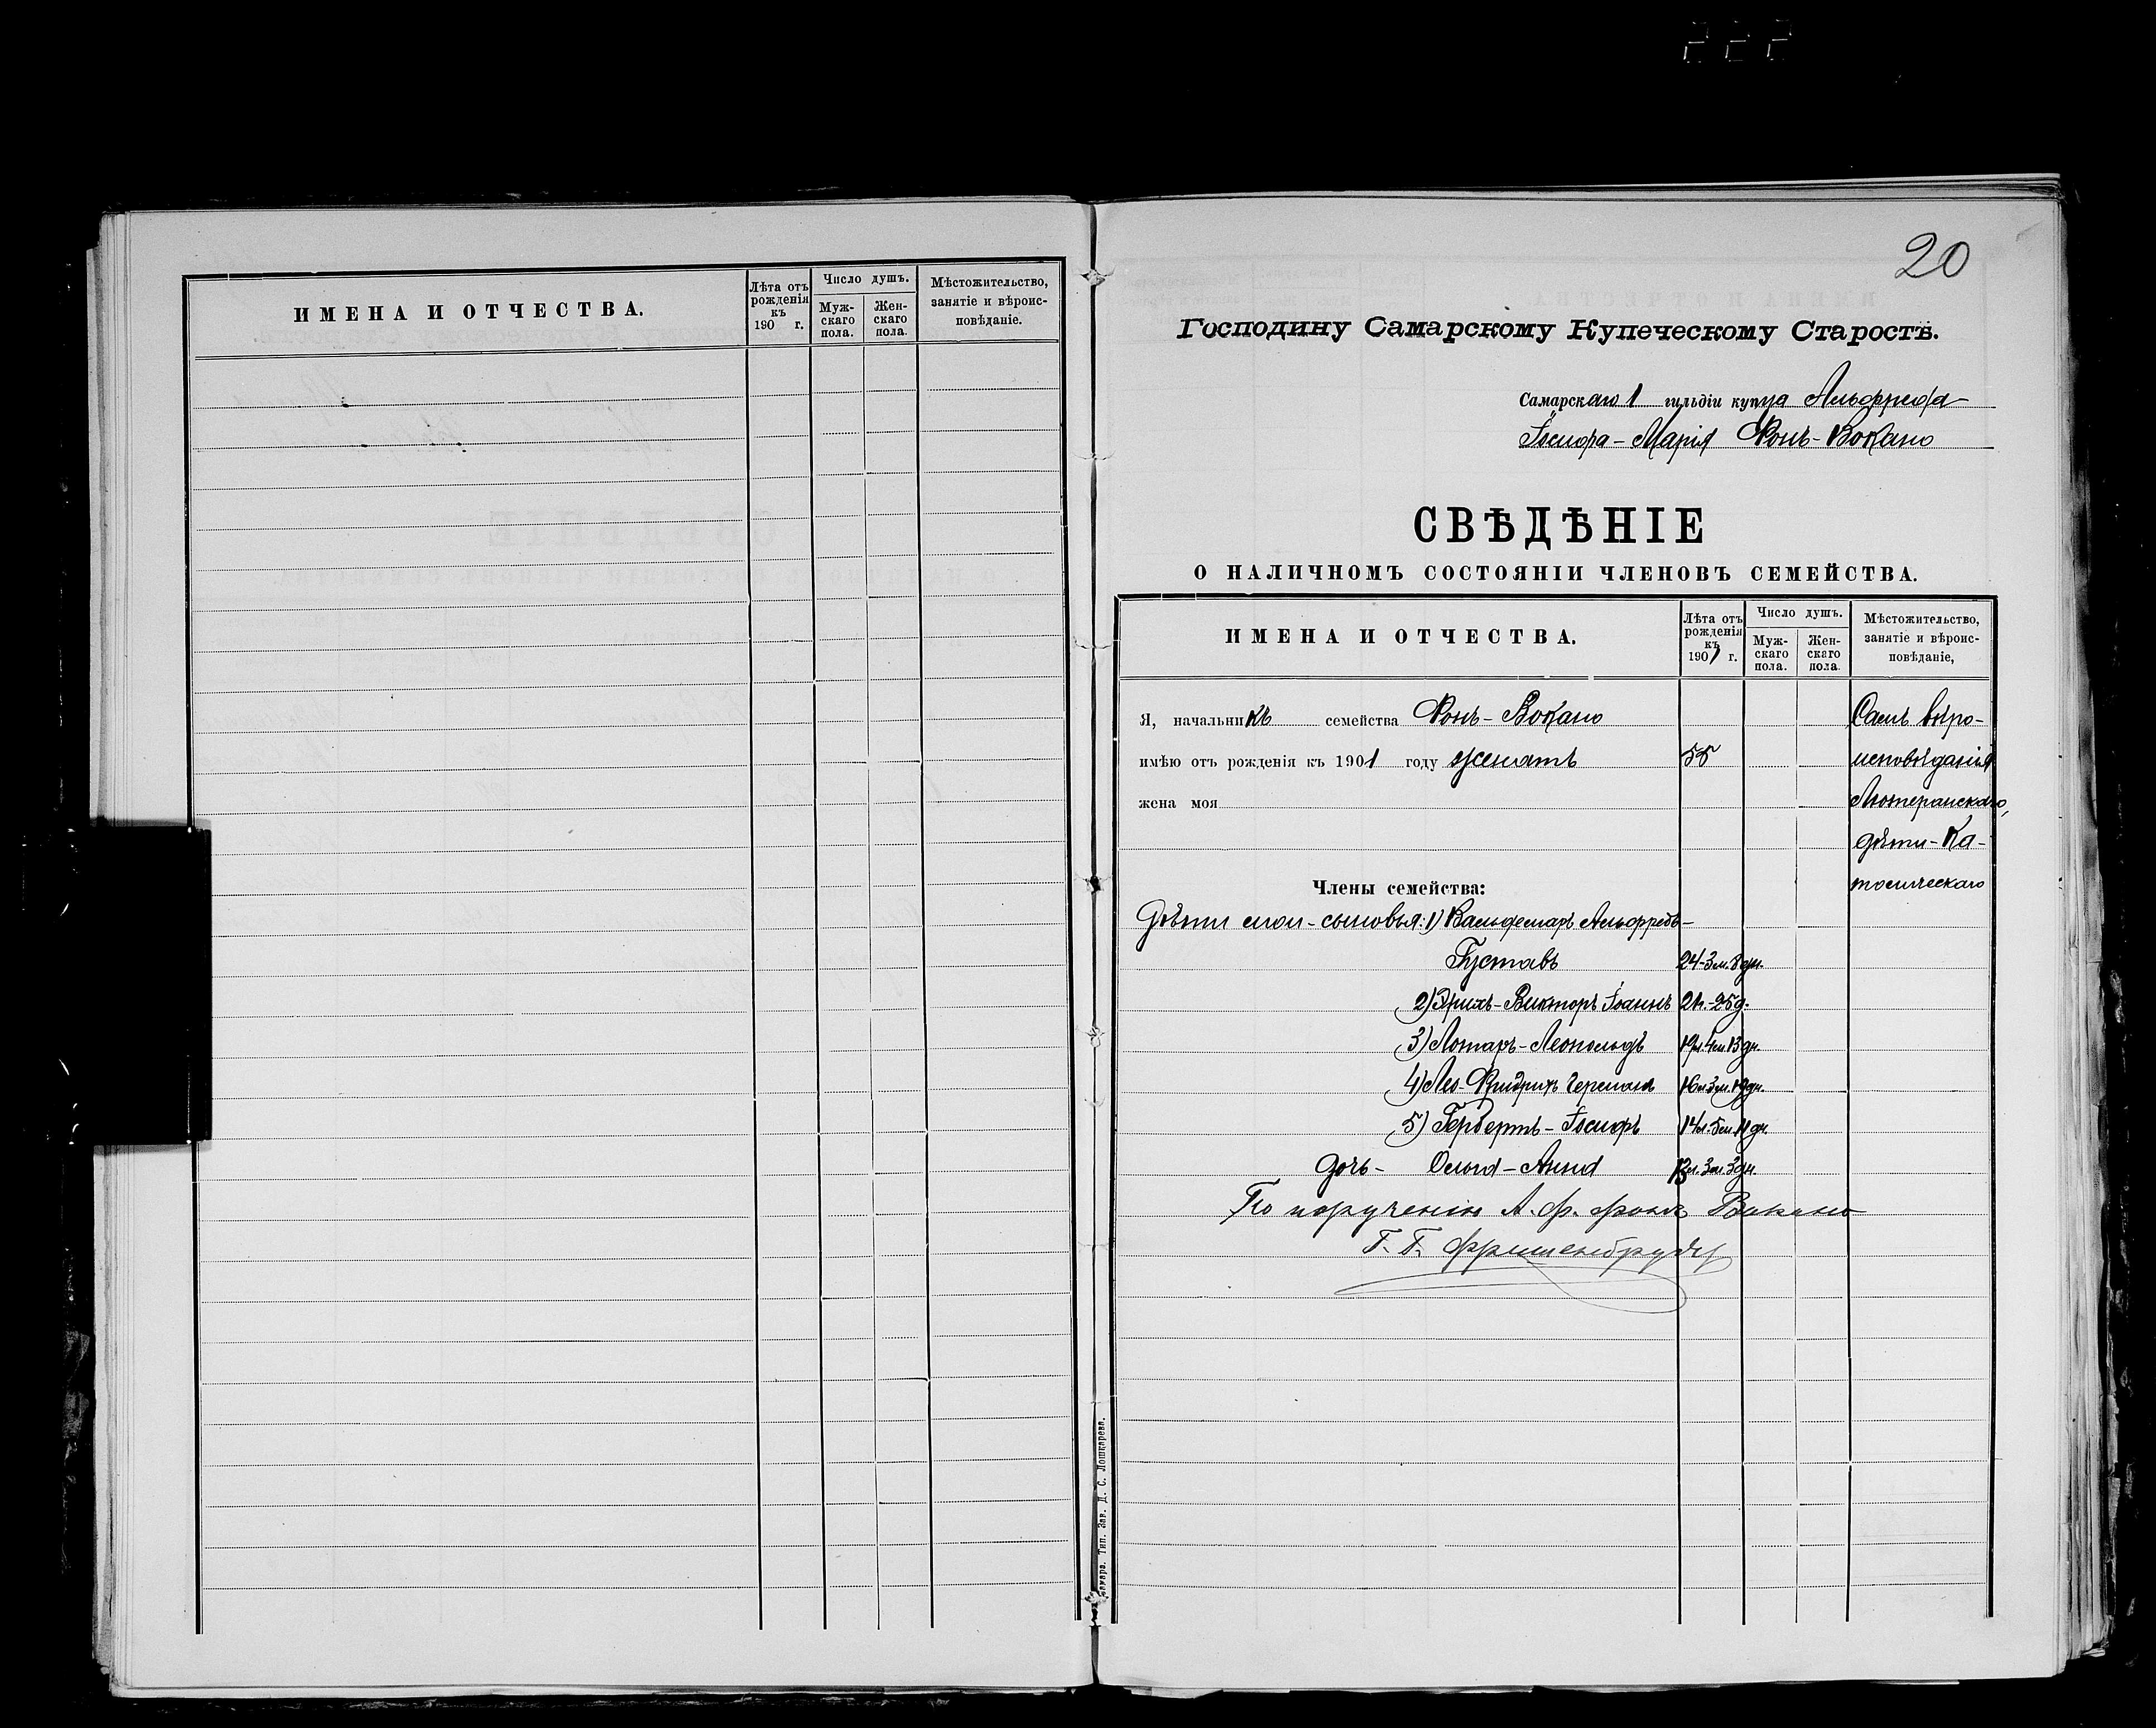 ИМЕНА И ОТЧЕСТВА.
Лѣта отъ рожденія къ 190 г.
Число душъ.
Муж-скаго пола.
Жен-скаго пола.
Мѣстожительство, занятіе и вѣроис-повѣданіе.
20
Господину Самарскому Купеческому Старостѣ.
Самарскаго 1 гильдіи купца Альфреда
Іосифа-Марія Фонъ-Вокано
СВѢДѢНІЕ
О НАЛИЧНОМЪ СОСТОЯНІИ ЧЛЕНОВЪ СЕМЕЙСТВА.
ИМЕНА И ОТЧЕСТВА.
Лѣта отъ рожденія къ 1901 г.
Число душъ.
Муж-скаго пола.
Жен-скаго пола.
Мѣстожительство, занятіе и вѣроис-повѣданіе,
Я, начальникъ семейства Фонъ-Вокано Самъ вѣро-
имѣю отъ рожденія къ 1901 году женатъ 55 исповѣданія
жена моя Лютеранскаго,
дѣти-Ка-
Члены семейства: толическаго
Дѣти мои-сыновья: 1) Вальдемаръ Альфредъ-
Густавъ 24-3м. 8дн.
2) Эрихъ-Викторъ Іоаннъ 21.-25д.
3) Лотаръ-Леопольдъ 19л. 4м. 13дн.
4) Лео-Фридрихъ Германъ 16л. 3м. 19дн.
5) Гербертъ-Іосифъ 14л. 5м. 11дн.
дочь- Ольга-Анна 13л. 3м. 3дн.
По порученію А. Ф. фонъ Вакано
Г. Г.
Самара. Тип. Зав. Д. С. Лошкарева.